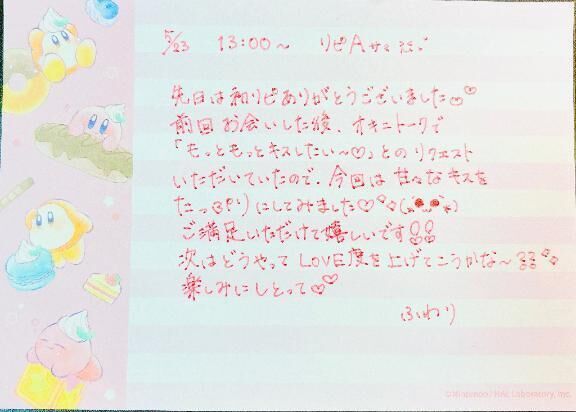 5/23 13:00～ リピAサマ
先日は初リピありがとうございました♡♡
前回お会いした後、オキニトークで
「もっともっとキスしたい～♡」とのリクエスト
いただいていたので、今回は甘々なキスを
たっぷりにしてみました♡
ご満足いただけて嬉しいです
次はどうやってLOVE度を上げてこうかな～
楽しみにしとって♡♡
ふわり
©Nintendo / HAL Laboratory, Inc.